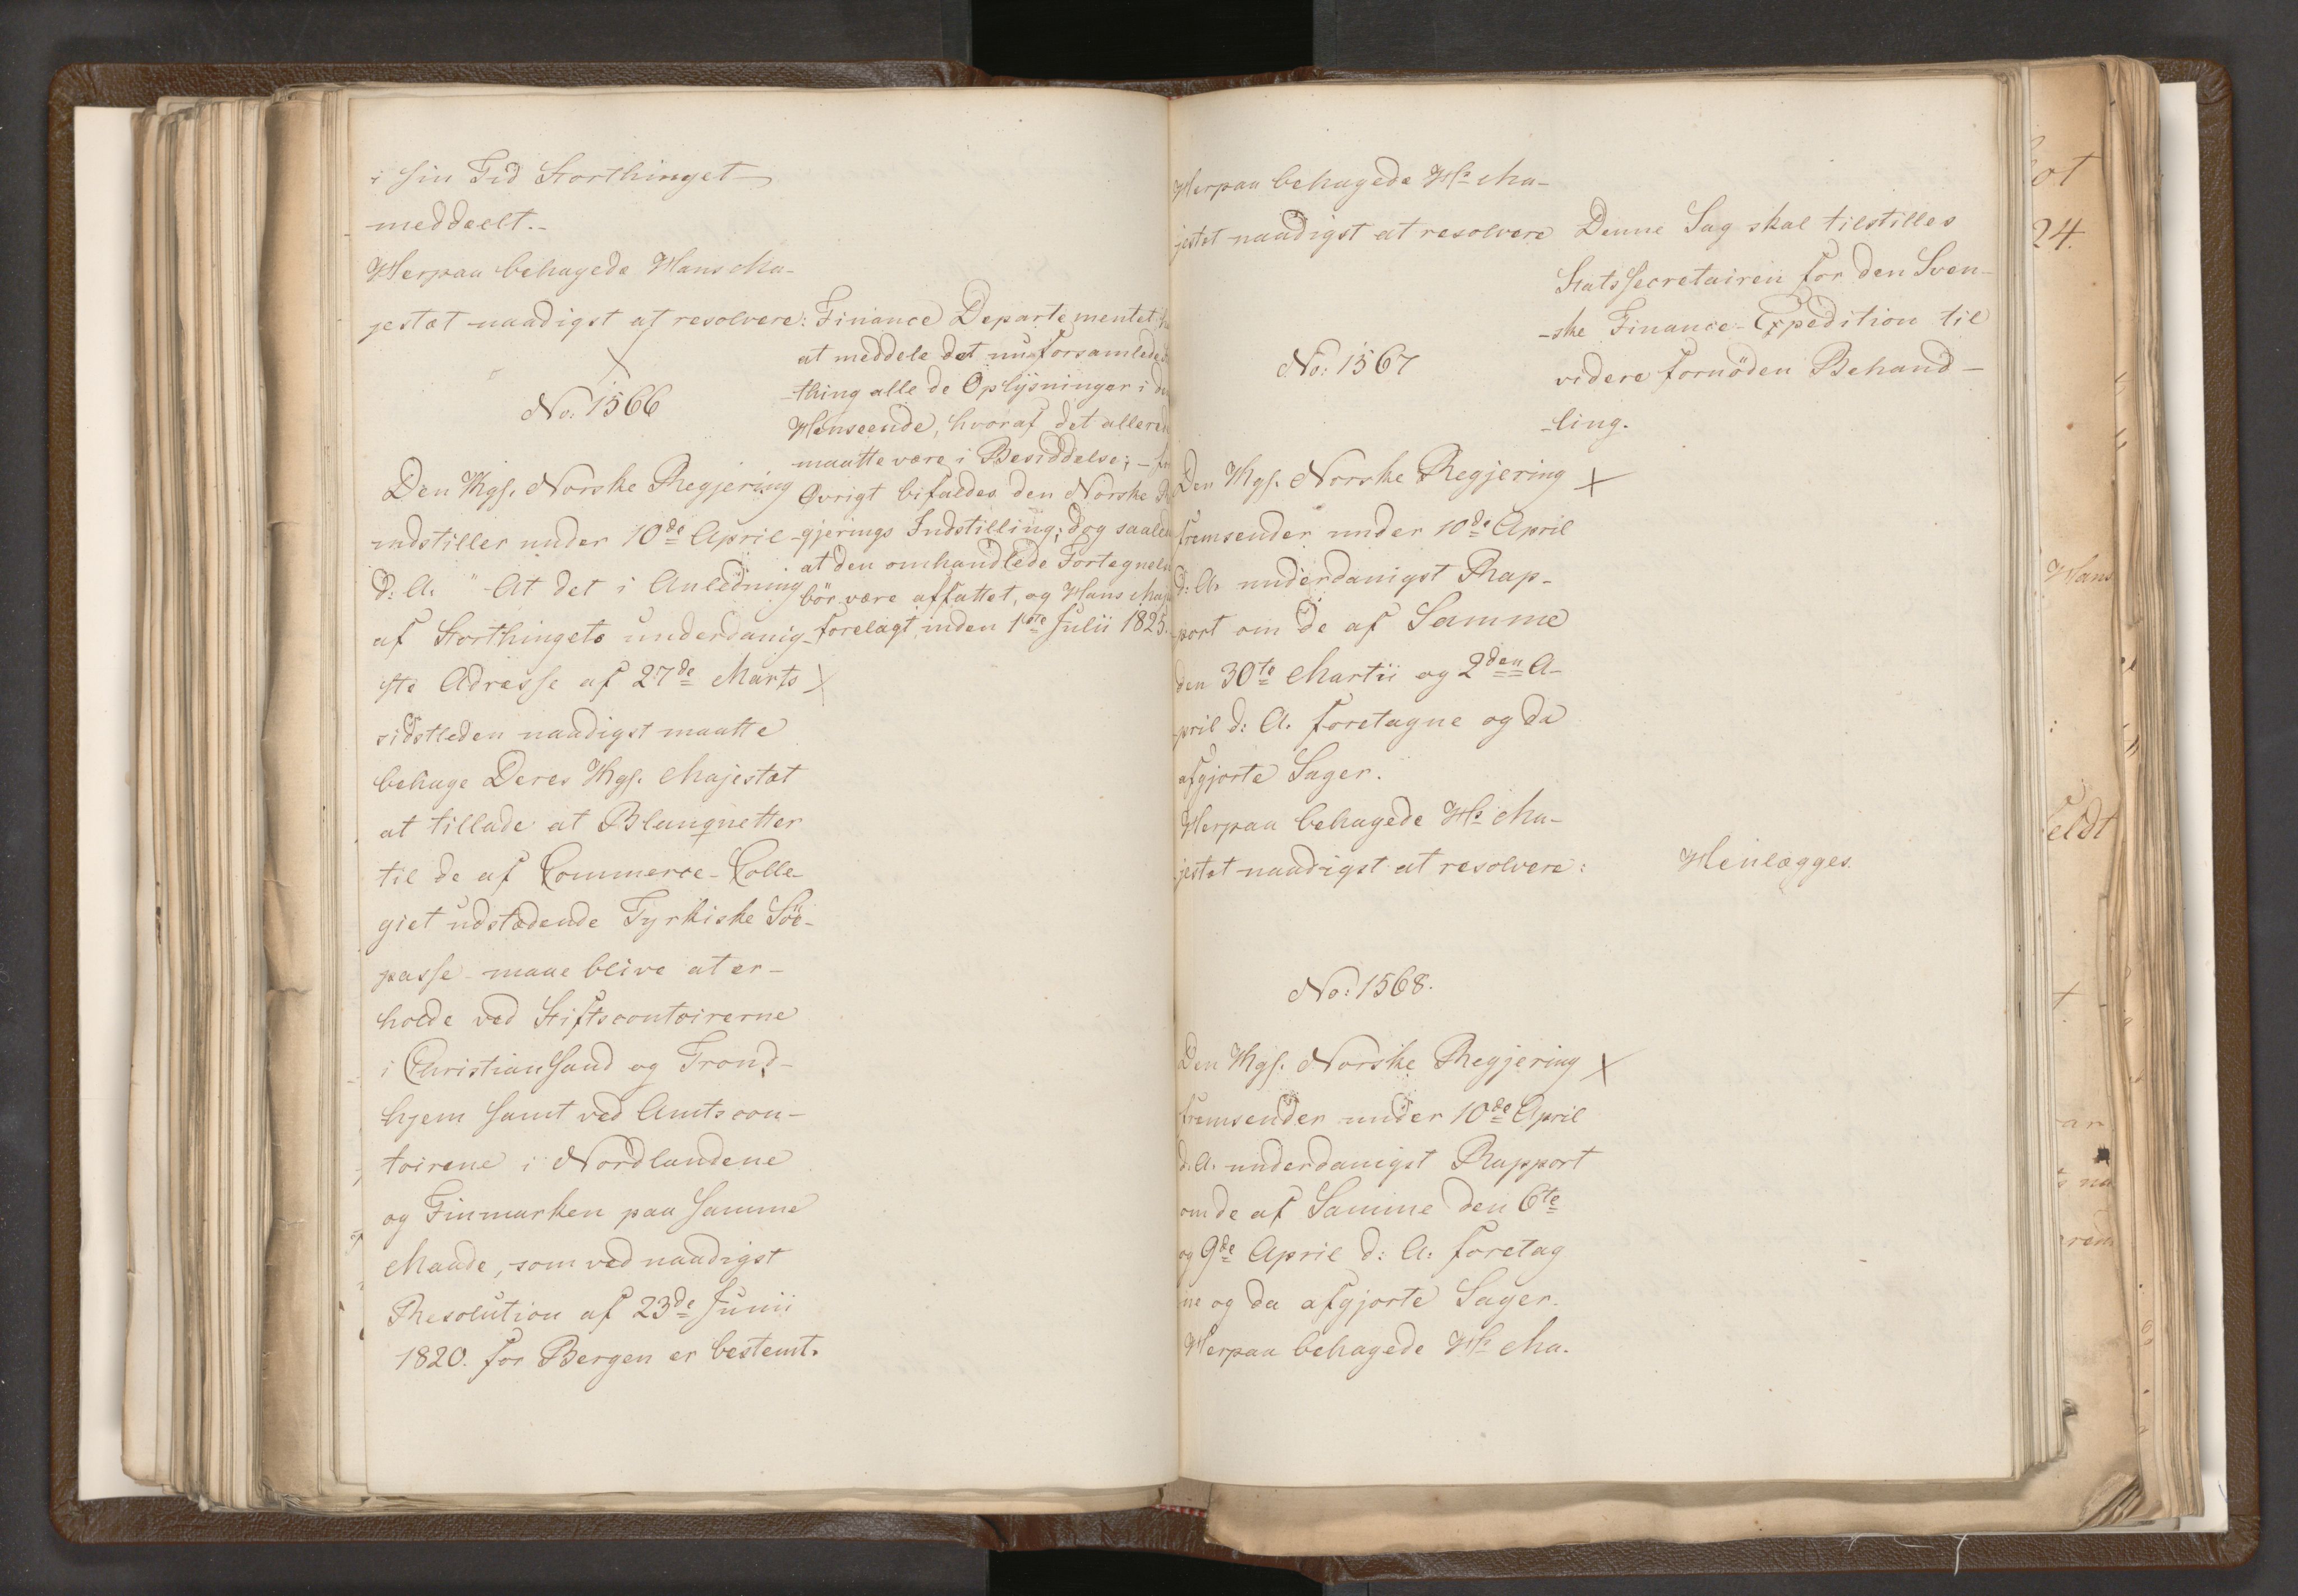 i sin Tid Storthinget
meddeelt.-
Herpaa behagede Hans Ma-
jestæt naadigst at resolvere:
Finance Departementet
at meddele det nu forsamlede
-thing alle de Oplysninger i
Henseende, hvoraf det allere
maatte være i Besiddelse; -
Øvrigt bifaldes den Norske
-gjerings Indstilling; dog saale
at den omhandlede Fortegnel
bör være affattet, og Hans Maj
forelagt inden 1ste Julii 1825.
No: 1566
Den Kgs. Norske Regjering
indstiller under 10de April
d: A. "At det i Anledning
af Storthingets underdanig-
ste Adresse af 27de Marts
sidstleden naadigst maatte
behage Deres Kgs. Majestæt
at tillade at Blanqnetter
til de af Commerce-Colle-
giet udstædende Tyrkiske Söe-
passe maae blive at er-
holde ved Stiftscontoirerne
i Christiansand og Trond-
hjem samt ved Amtscon-
toirene i Nordlandene
og Finmarken paa samme
Maade, som ved naadigst
Resolution af 23de Junii
1820. for Bergen er bestemt.
Herpaa behagede Hs Ma-
jestæt naadigst at resolvere
Denne Sag skal tilstilles
Statssecretairen for den Sven-
-ske Finance-Expedition til
videre fornöden Behand-
-ling.
No: 1567
Den Kgs. Norske Regjering
fremsender under 10de April
d: A. underdanigst Rap-
port om de af Samme
den 30te Martii og 2den A-
pril d: A. foretagne og da
afgjorte Sager.
Herpaa behagede Hs Ma-
jestæt naadigst at resolvere:
Henlægges.
No: 1568.
Den Kgs. Norske Regjering
fremsender under 10de April
d. A. underdanigst Rapport
om de af Samme den 6te
og 9de April d: A: foretag
ne og da afgjorte Sager.
Herpaa behagede Hs Ma-
ot
24.
Hans
eldt